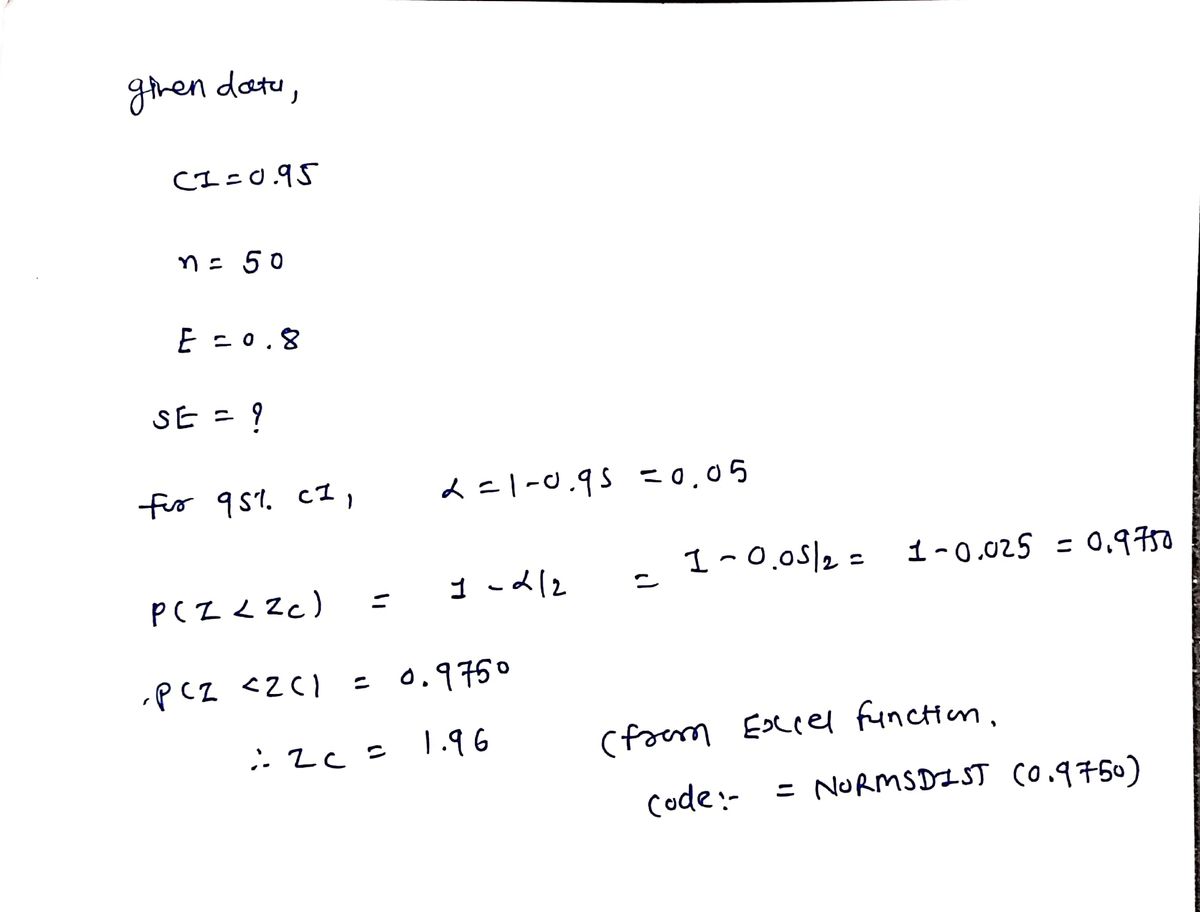 given data,
CI = 0.95
n = 50
E = 0.8
SE = ?
for 95% CI, α = 1-0.95 = 0.05
P(Z < Zc) = 1 - α/2 = 1 - 0.05/2 = 1 - 0.025 = 0.9750
.P(Z < ZC) = 0.9750
∴ Zc = 1.96 (from Excel function,
code:- = NORMSDIST (0.9750)